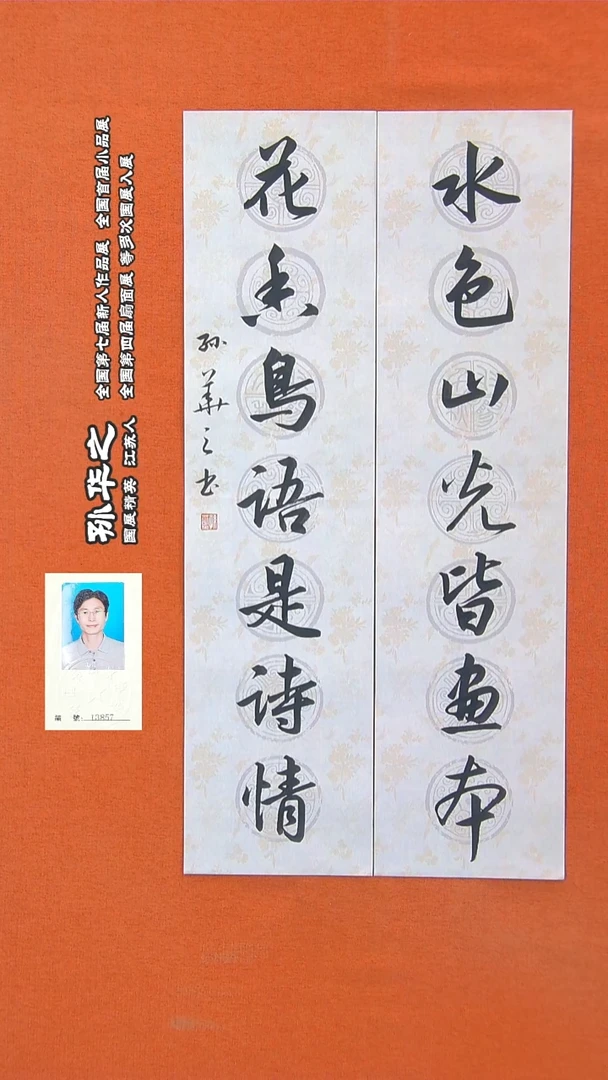 水色山光皆画本
花香鳥语是诗情
孙華之书
孙华之
国展精英 江苏人
全国第七届新人作品展 全国首届小品展
全国第四届扇面展 等多次国展入展
编 號：13857